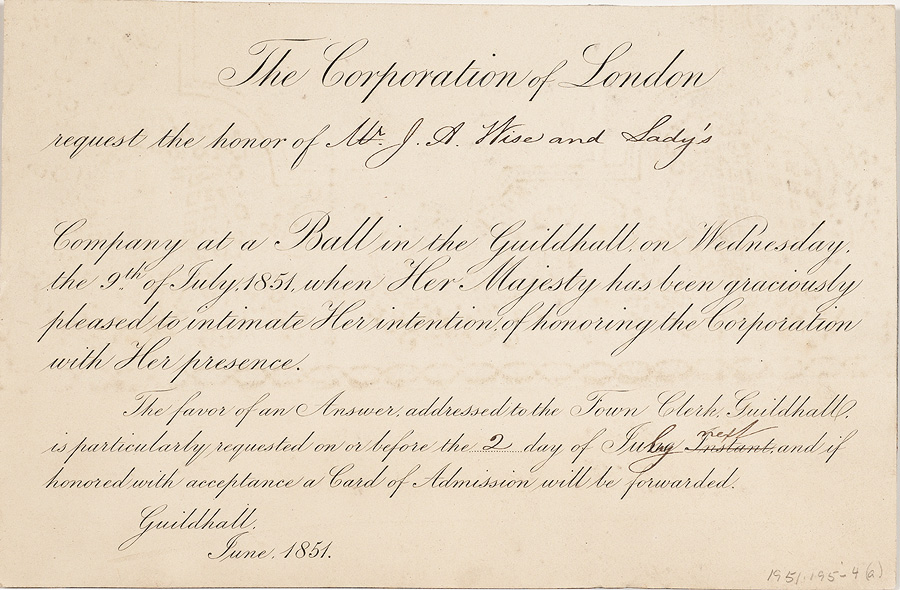 The Corporation of London
request the honor of Mr. J. A. Wise and Lady's
Company at a Ball in the Guildhall, on Wednesday,
the 9th of July, 1851, when Her Majesty has been graciously
pleased to intimate Her intention, of honoring the Corporation
with Her presence.
The favor of an Answer, addressed to the Town Clerk, Guildhall,
is particularly requested on or before the 2 day of July next Instant, and if
honored with acceptance a Card of Admission will be forwarded.
Guildhall.
June, 1851.
1951.195-4 (a)